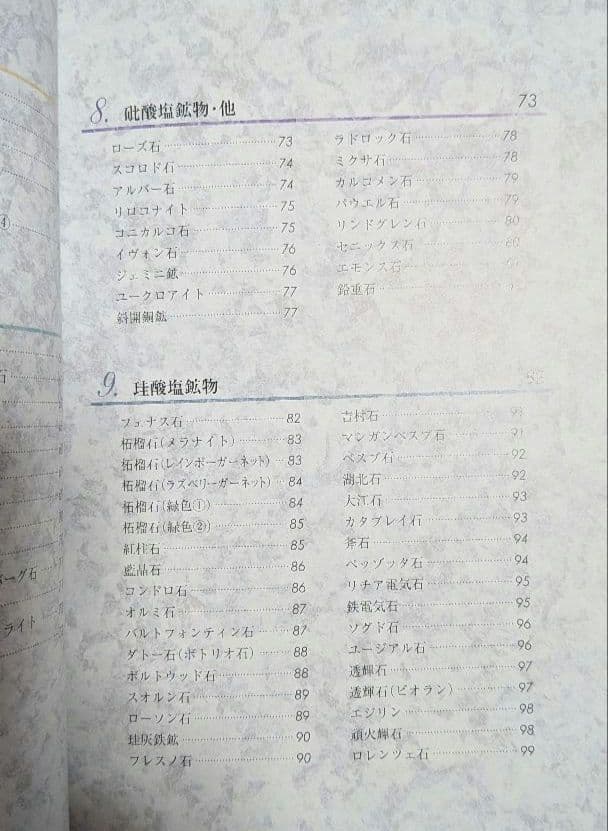 8. 砒酸塩鉱物・他 73
ローズ石 73
スコロド石 74
アルバー石 74
リロコナイト 75
コニカルコ石 75
イヴォン石 76
ジェミニ鉱 76
ユークロアイト 77
斜開銅鉱 77
ラドロック石 78
ミクサ石 78
カルコメン石 79
パウエル石 79
リンドグレン石 80
セニックス石 80
エモンス石
鉛重石
9. 珪酸塩鉱物
フェナス石 82
柘榴石(メラナイト) 83
柘榴石(レインボーガーネット) 83
柘榴石(ラズベリーガーネット) 84
柘榴石(緑色①) 84
柘榴石(緑色②) 85
紅柱石 85
藍晶石 86
コンドロ石 86
オルミ石 87
バルトフォンティン石 87
ダトー石(ボトリオ石) 88
ポルトウッド石 88
スオルン石 89
ローソン石 89
珪灰鉄鉱 90
フレスノ石 90
吉村石 91
マンガンベスブ石 91
ベスブ石 92
湖北石 92
大江石 93
カタプレイ石 93
斧石 94
ペッゾッタ石 94
リチア電気石 95
鉄電気石 95
ソグド石 96
ユージアル石 96
透輝石 97
透輝石(ビオラン) 97
エジリン 98
頑火輝石 98
ロレンツェ石 99
④
石
バーグ石
ライト